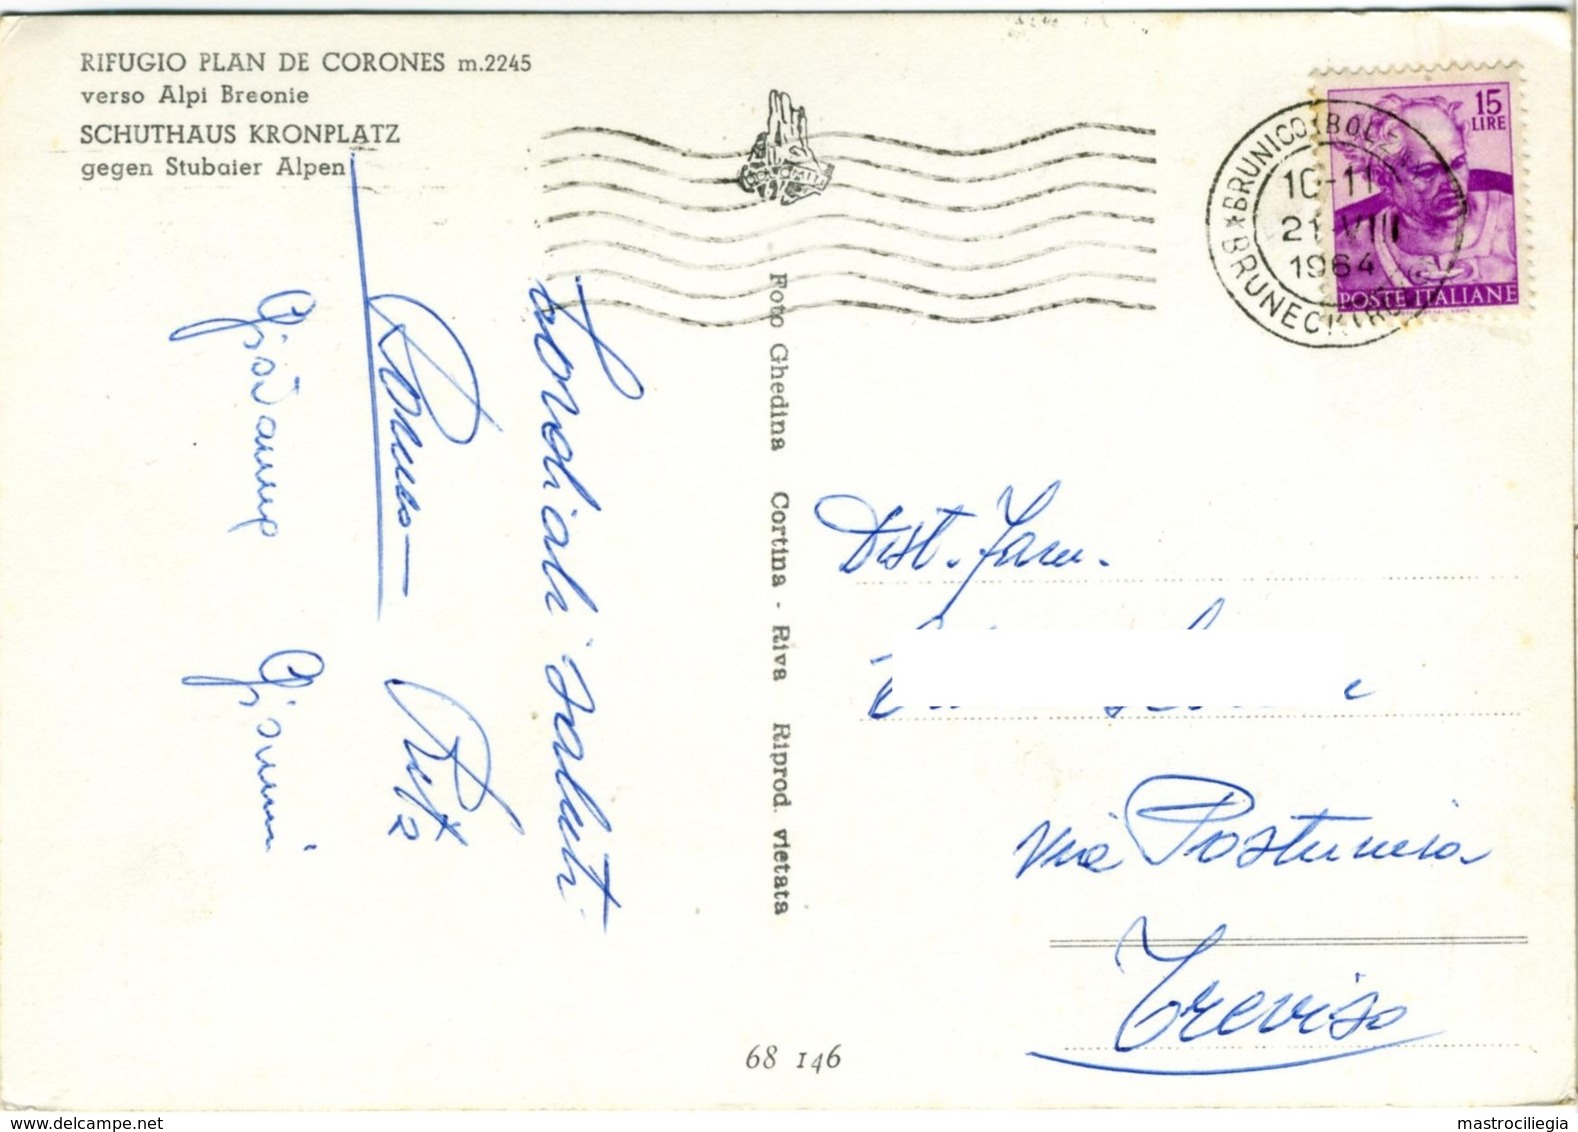 RIFUGIO PLAN DE CORONES m.2245
verso Alpi Breonie
SCHUTHAUS KRONPLATZ
gegen Stubaier Alpen
DOLOMITI
15
LIRE
POSTE ITALIANE
BRUNICO (BOLZ
BRUNECK
10-11
21 VIII
1964
Cordiali saluti
Gianni
Foto Ghedina Cortina - Riva Riprod. vietata
Dist. Fam.
Via Postumia
Treviso
68 146
www.delcampe.net
mastrociliegia